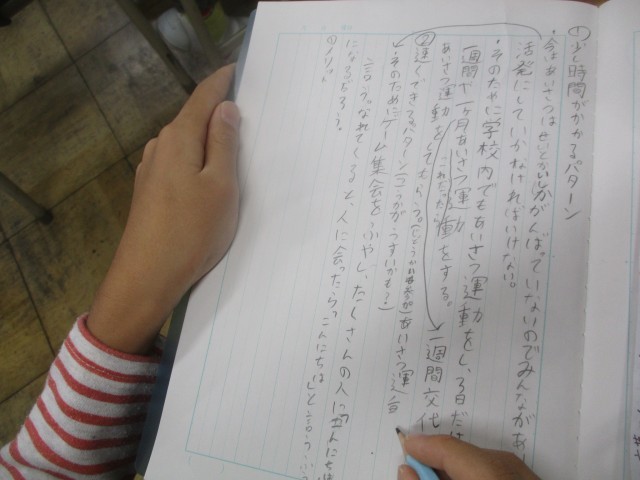 ①少し時間がかかるパターン
・今はあいさつはせいとかいしかがんばっていないのでみんながあい
活発にしていかなければいけない。
・そのために学校内でもあいさつ運動をし、3日だけ
一週間や一ヶ月あいさつ運動をする。
あいさつ運動をしてもらう。
一週間交代
②速くできるパターン(こうかがうすいかも?)
・そのためにゲーム集会をふやし、たくさんの人に「こんにちは
言う。なれてくると、人に会ったら「こんにちは」と言う
になるだろう。
のメリット